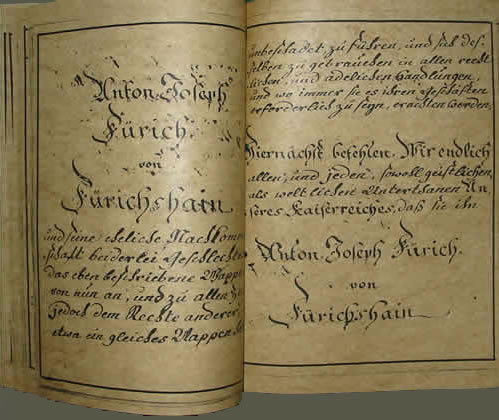 Anton Joseph
Fürich
von
Fürichshain
und seine eheliche Nachkom
schaft beiderlei Geschlecht
das eben beschriebene Wappe
von nun an, und zu allen
jedoch dem Rechte anderer
etwa ein gleiches Wappen
unbeschadet, zu führen, und sich des-
selben zu gebrauchen in allen recht
lichen, und adelichen Handlungen,
und wo immer sie es ihren Geschäften
erforderlich zu seyn, erachten werden.
Hiernächst befehlen Wir endlich
allen, und jeden, sowohl geistlichen,
als weltlichen Unterthanen Un
seres Kaiserreiches, daß sie ihn
Anton Joseph Fürich
von
Fürichshain